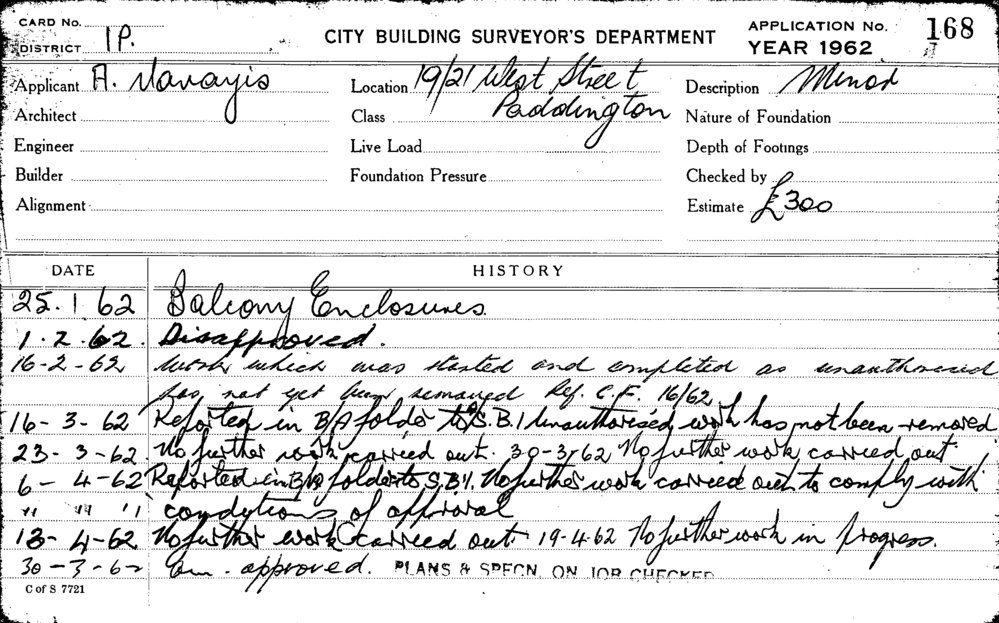 CARD No.
DISTRICT 1P.
CITY BUILDING SURVEYOR'S DEPARTMENT
APPLICATION No. 168
YEAR 1962
Applicant A. Navayis Location 19/21 West Street Description Minor
Architect Class Paddington Nature of Foundation
Engineer Live Load Depth of Footings
Builder Foundation Pressure Checked by
Alignment Estimate £300
DATE HISTORY
25.1.62 Balcony Enclosures.
1.2.62. Disapproved.
16-2-62 Work which was started and completed as unauthorised
has not yet been removed Ref. C.F. 16/62
16-3-62 Reported in B/A folder to S.B.I Unauthorised work has not been removed
23-3-62. No further work carried out. 30-3-62 No further work carried out
6-4-62 Reported in B/A folder to S.B.I. No further work carried out to comply with
" " " conditions of approval
13-4-62 No further work carried out 19-4-62 No further work in progress.
30-3-62 am. approved. PLANS & SPECN. ON JOB CHECKED
C of S 7721